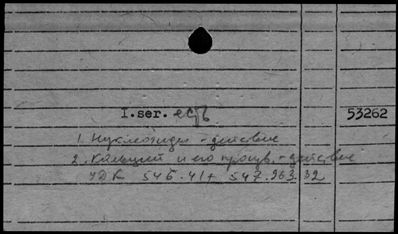 I.ser. есть 53262
1. Нуклеотиды - действие
2. Кальций и его произв. - действие
УДК 546.41+ 547.963.32